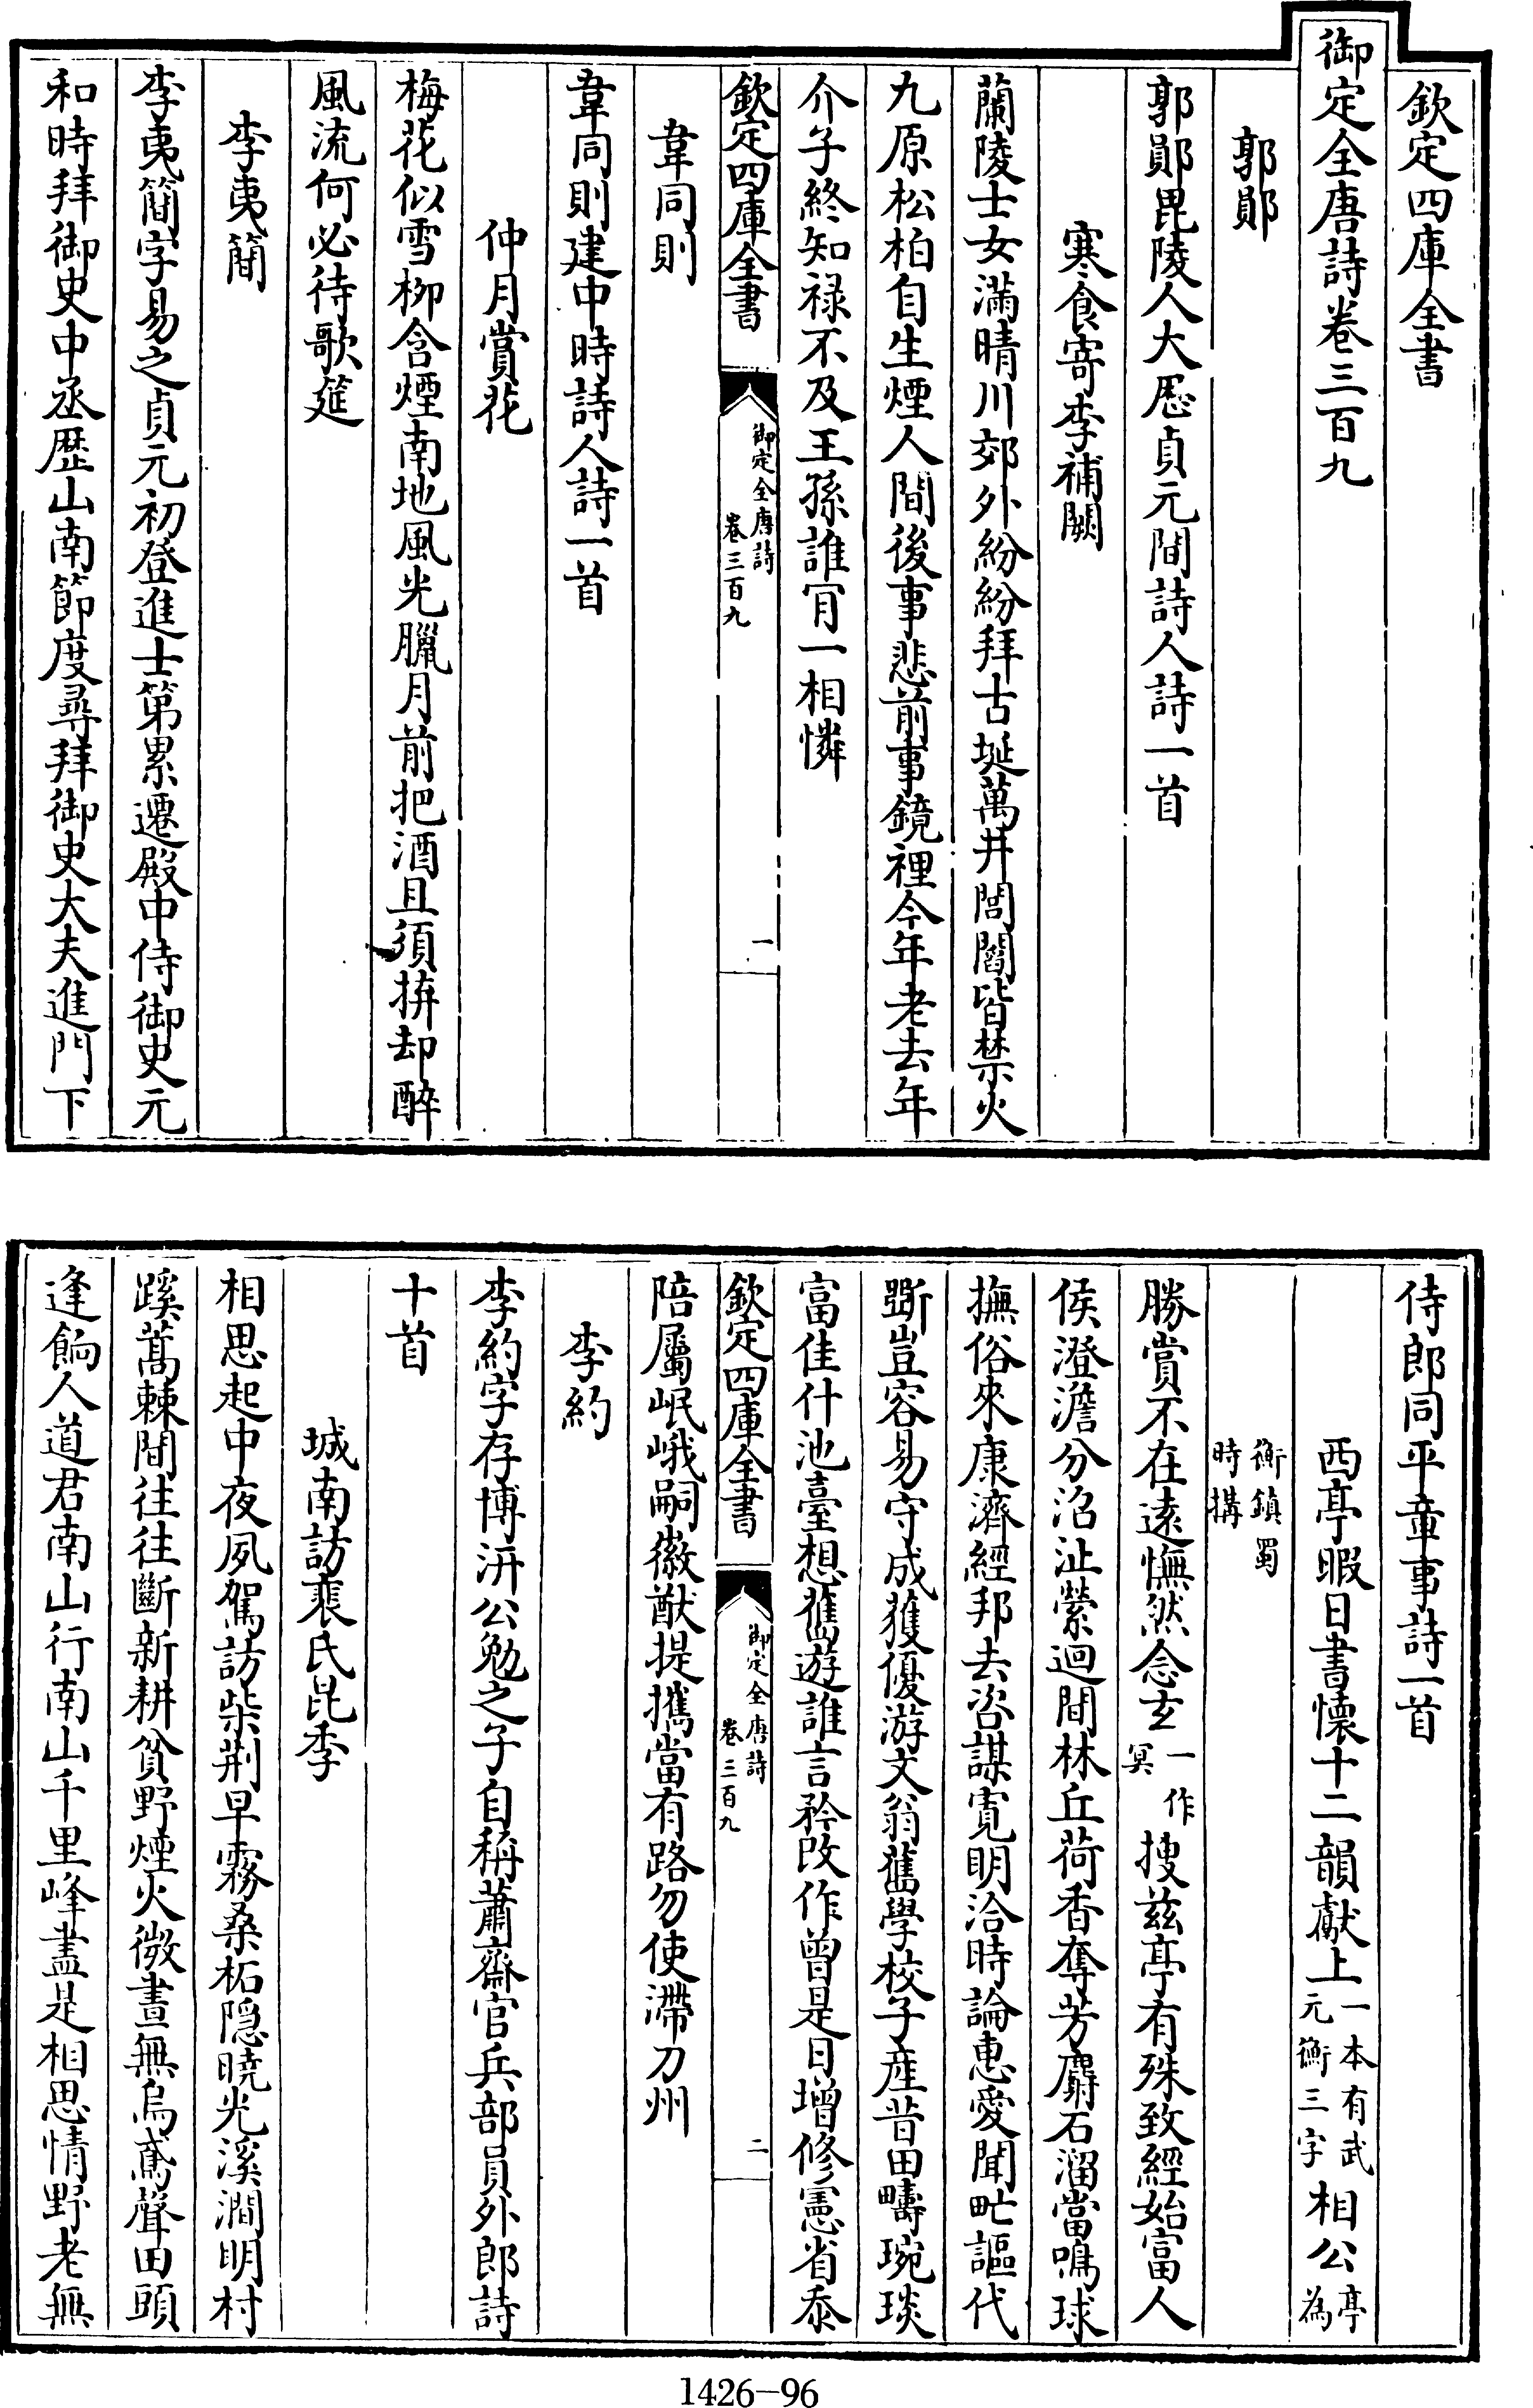 欽定四庫全書
御定全唐詩卷三百九
郭鄖
郭鄖毘陵人大厯貞元間詩人詩一首
寒食寄李補闕
蘭陵士女滿晴川郊外紛紛拜古埏萬井閭閻皆禁火
九原松柏自生煙人間後事悲前事鏡裡今年老去年
介子終知禄不及王孫誰肎一相憐
欽定四庫全書
御定全唐詩
卷三百九
一
韋同則
韋同則建中時詩人詩一首
仲月賞花
梅花似雪柳含煙南地風光臘月前把酒且須拚却醉
風流何必待歌筵
李夷簡
李夷簡字易之貞元初登進士第累遷殿中侍御史元
和時拜御史中丞歴山南節度尋拜御史大夫進門下
侍郎同平章事詩一首
西亭暇日書懐十二韻獻上一本有武元衡三字相公亭為
衡鎮蜀時構
勝賞不在遠憮然念玄一作冥搜兹亭有殊致經始富人
侯澄澹分沼沚縈迴間林丘荷香奪芳麝石溜當鳴球
撫俗來康濟經邦去咨謀寛明洽時論惠愛聞甿謳代
斵豈容易守成獲優游文翁舊學校子產昔田疇琬琰
富佳什池臺想舊遊誰言矜改作曾是日增修憲省忝
欽定四庫全書
御定全唐詩
卷三百九
二
陪屬岷峨嗣徽猷提攜當有路勿使滯刀州
李約
李約字存博汧公勉之子自稱蕭齋官兵部員外郎詩
十首
城南訪裴氏昆季
相思起中夜夙駕訪柴荆早霧桑柘隱曉光溪澗明村
蹊蒿棘間往往斷新耕貧野煙火微晝無烏鳶聲田頭
逢餉人道君南山行南山千里峰盡是相思情野老無
1426-96